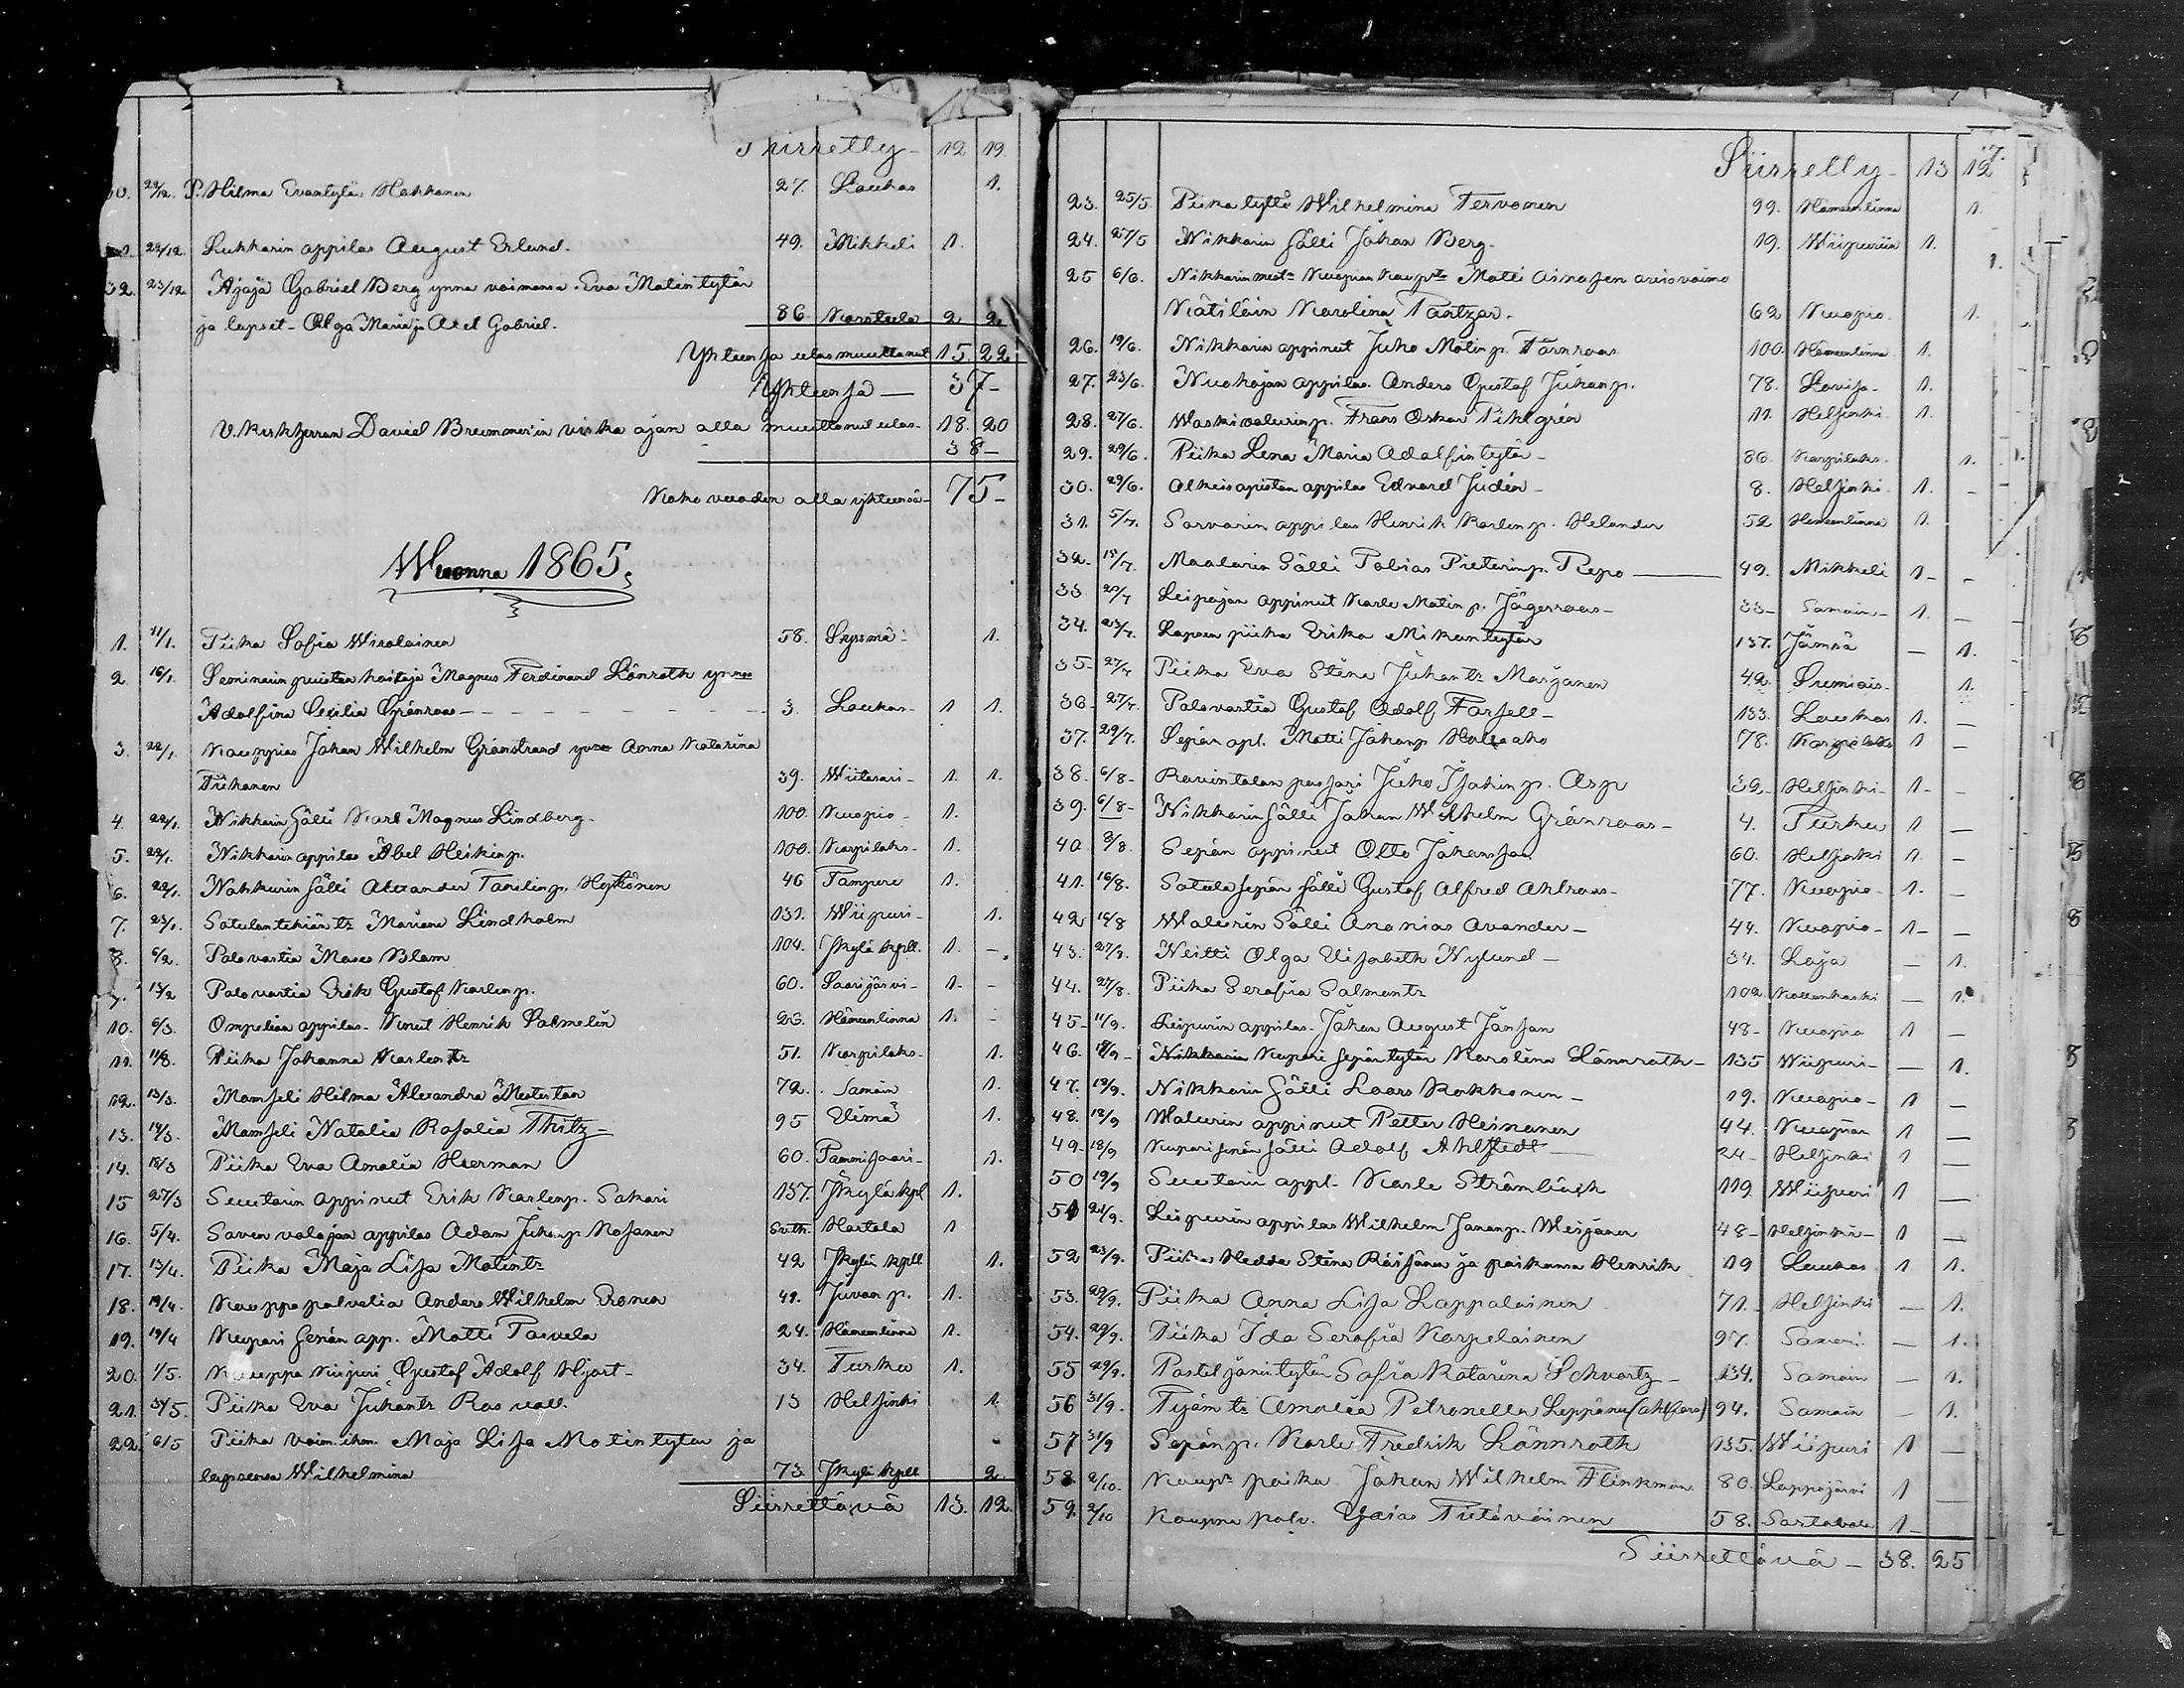 Siirretty - 12 19
30. 22/12. P. Hilma Evantytär Hakkanen 27. Laukas 1.
31. 22/12. Lukkarin appilas August Erlund. 49. Mikkeli 1.
32. 23/12. Ajaja Gabriel Berg ynna vaimonsa Eva Matintytär
ja lapset - Olga Maria ja Axel Gabriel. 86. Karstula 2 2.
Yhteensa ulos muuttanut 15. 22
Yhteensä — 37 -
V. kirkherran David Brummer'in virka ajan alla muuttanut ulos - 18. 20
38 -
Koko vuoden alla yhteensä - 75 -
Wuonna 1865.
1. 11/1. Piika Sofia Wirolainen 58. Sysmä - 1.
2. 16/1. Seminarin puiston hoitaja Magnus Ferdinand Lönroth ynna
Adolfina Cecilia Grönroos - - - 3. Laukas - 1 1.
3. 22/1. Kauppias Johan Wilhelm Grönstrand ynna Anna Katarina
Tiihonen 39. Wiitasari - 1. 1.
4. 22/1. Nikkarin Sälli Karl Magnus Lindberg - 100. Kuopio - 1.
5. 22/1. Nikkarin appilas Abel Heikinp. 100. Korpilaks - 1.
6. 22/1. Nahkurin Sälli Alexander Tavelinp. Hytönen 46 Tampere 1.
7. 23/1. Satulantekiän tr Mariana Lindholm 131. Wiipuri - 1.
8. 6/2. Palovartia Blom 104. Jkylä kpll. 1. -
9. 13/2 Palovartia Erik Gustaf Karlinp. 60. Saarijärvi - 1. -
10. 6/3. Ompelian appilas - Knut Henrik Salmelin 23. Hämeenlinna 1. -
11. 11/3. Piika Johanna Karlentr 51. Korpilaks - 1.
12. 13/3. Mamseli Hilma Alexandra 72. Samain 1.
13. 14/3. Mamseli Natalia Rosalia Thitz - 95 Elimä 1.
14. 18/3 Piika Eva Amalia Herman 60. Tammisaari - 1.
15 27/3 Suutarin appinut Erik Karlenp. Sakari 137. Jkylä kpl 1.
16. 5/4. Saven valajan appilas Adam Juhanp Kosanen Hartola 1.
17. 13/4. Piika Maja Lisa Matintr 42 Jkylä kpll 1.
18. 19/4. Kauppa palvelia Anders Wilhelm Eronen 41. Juvan p. 1.
19. 19/4 Kupari sepän app. Matti Parvela 24. Hämeenlinna 1.
20. 1/5. Kauppa Gustaf Adolf Hjort - 34. Turku 1.
21. 5/5. Piika Eva Juhantr 13 Helsinki 1.
22. 6/5 Piika Maja Lisa Matintytär ja
lapsensa Wilhelmina 73. Jkylä kpll 2.
Siirrettävä 13. 12.
17.
Siirretty - 13 12
23. 25/5. Piika tyttö Wilhelmina Tervonen 99. Hämeenlinna 1.
24. 27/5 Nikkarin Sälli Johan Berg - 19. Wiipuriin 1.
25 6/6. Nikkarin mest- Kuopion kaup Matti Asmasen aviovaimo
Kätilöin Karolina Pantzar - 62 Kuopio - 1.
26. 19/6. Nikkarin appinut Juho Matinp. Törnroos 100. Hämeenlinna 1.
27. 23/6. Nuohojan appilas. Anders Gustaf Juhanp. 78. Lovisa - 1.
28. 27/6. Waskivalurinp. Frans Oskar Pihlgrén 11. Helsinki 1.
29. 29/6. Piika Lena Maria Adolfintytär - 86. Korpilaks - 1.
30. 29/6. Alkeisopiston appilas Edvard Judén - 8. Helsinki 1. -
31. 5/7. Sorvarin appilas Henrik Karlenp. Helander 52 Hämeenlinna 1.
32. 15/7. Maalarin Sälli Tobias Pietarinp. Repo — 49. Mikkeli 1 - -
33 20/7 Leipojan appinut Karle Matinp. Jägerroos - 33 - Samain - 1. -
34. 23/7. Lapsen piika Erika Mikontytär 137. Jämsä - 1.
35 - 27/7 Piika Eva Stina Juhantr Marjanen 42. Sumiais - 1.
36 - 27/7. Palovartia Gustaf Adolf Forsell - 133. Laukas 1. -
37. 29/7. Sepän apl. Matti Johanp Hallaaho 78. Korpilaks 1 -
38. 6/8 - Ravintolan passari Juho Isakinp. Asp 32 - Helsinki - 1 - -
39. 6/8 - Nikkarin Sälli Johan Wilhelm Grönroos - 4. Turku 1 -
40 8/8. Sepän appinut Otto Johansson 60. Helsinki 1. -
41. 16/8. Satula sepän sälli Gustaf Alfred Ahlroos - 77. Kuopio - 1. -
42 16/8 Walurin Sälli Ananias Avander - 44. Kuopio - 1 - -
43. 27/8. Neitti Olga Elisabeth Nylund - 34. Loja - 1.
44. 27/8. Piika Serafia Salmentr 102. Kovenkoski - 1.
45 - 11/9. Leipurin appilas. Johan August Jansan 48 - Kuopio 1 -
46. 18/9 - Nikkarin Kupari sepän tytär Karolina Lönnroth - 135 Wiipuri - - 1.
47. 18/9. Nikkarin Sälli Laars Kokkonen - 19. Kuopio - 1 -
48. 18/9 Walurin appinut Petter Heinonen 44. Kuopion 1 -
49. 18/9 Kuparisepän Sälli Adolf Ahlstedt - 24 - Helsinki 1 -
50 19/9 Suutarin appl. Karle Strömberg 119. Wiipuri 1 -
51 21/9. Leipurin appilas Wilhelm Janonp. Weijanen 48 - Helsinki - 1 -
52 23/9. Piika Hedda Stina Räisänen ja poikansa Henrik 19 Laukas 1 1.
53. 29/9. Piika Anna Lisa Lappalainen 71. Helsinki - 1.
54. 29/9. Piika Ida Serafia Karpelainen 97. Samain - 1.
55 29/9. Postiljonintytär Sofia Katarina Schvartz - 134. Samain - 1.
56 31/9. Työm tr Amalia Petronella Leppänen (Ahlfors) 94. Samain - 1.
57 31/9 Sepänp. Karle Fredrik Lönnroth 135. Wiipuri 1 -
58. 2/10. Kaup poika Johan Wilhelm Flinkman 80. Lappajärvi 1 -
59. 2/10 Kauppa palv. Esaias Tiitäväinen 58. Sortavala 1 -
Siirrettävä - 38. 25